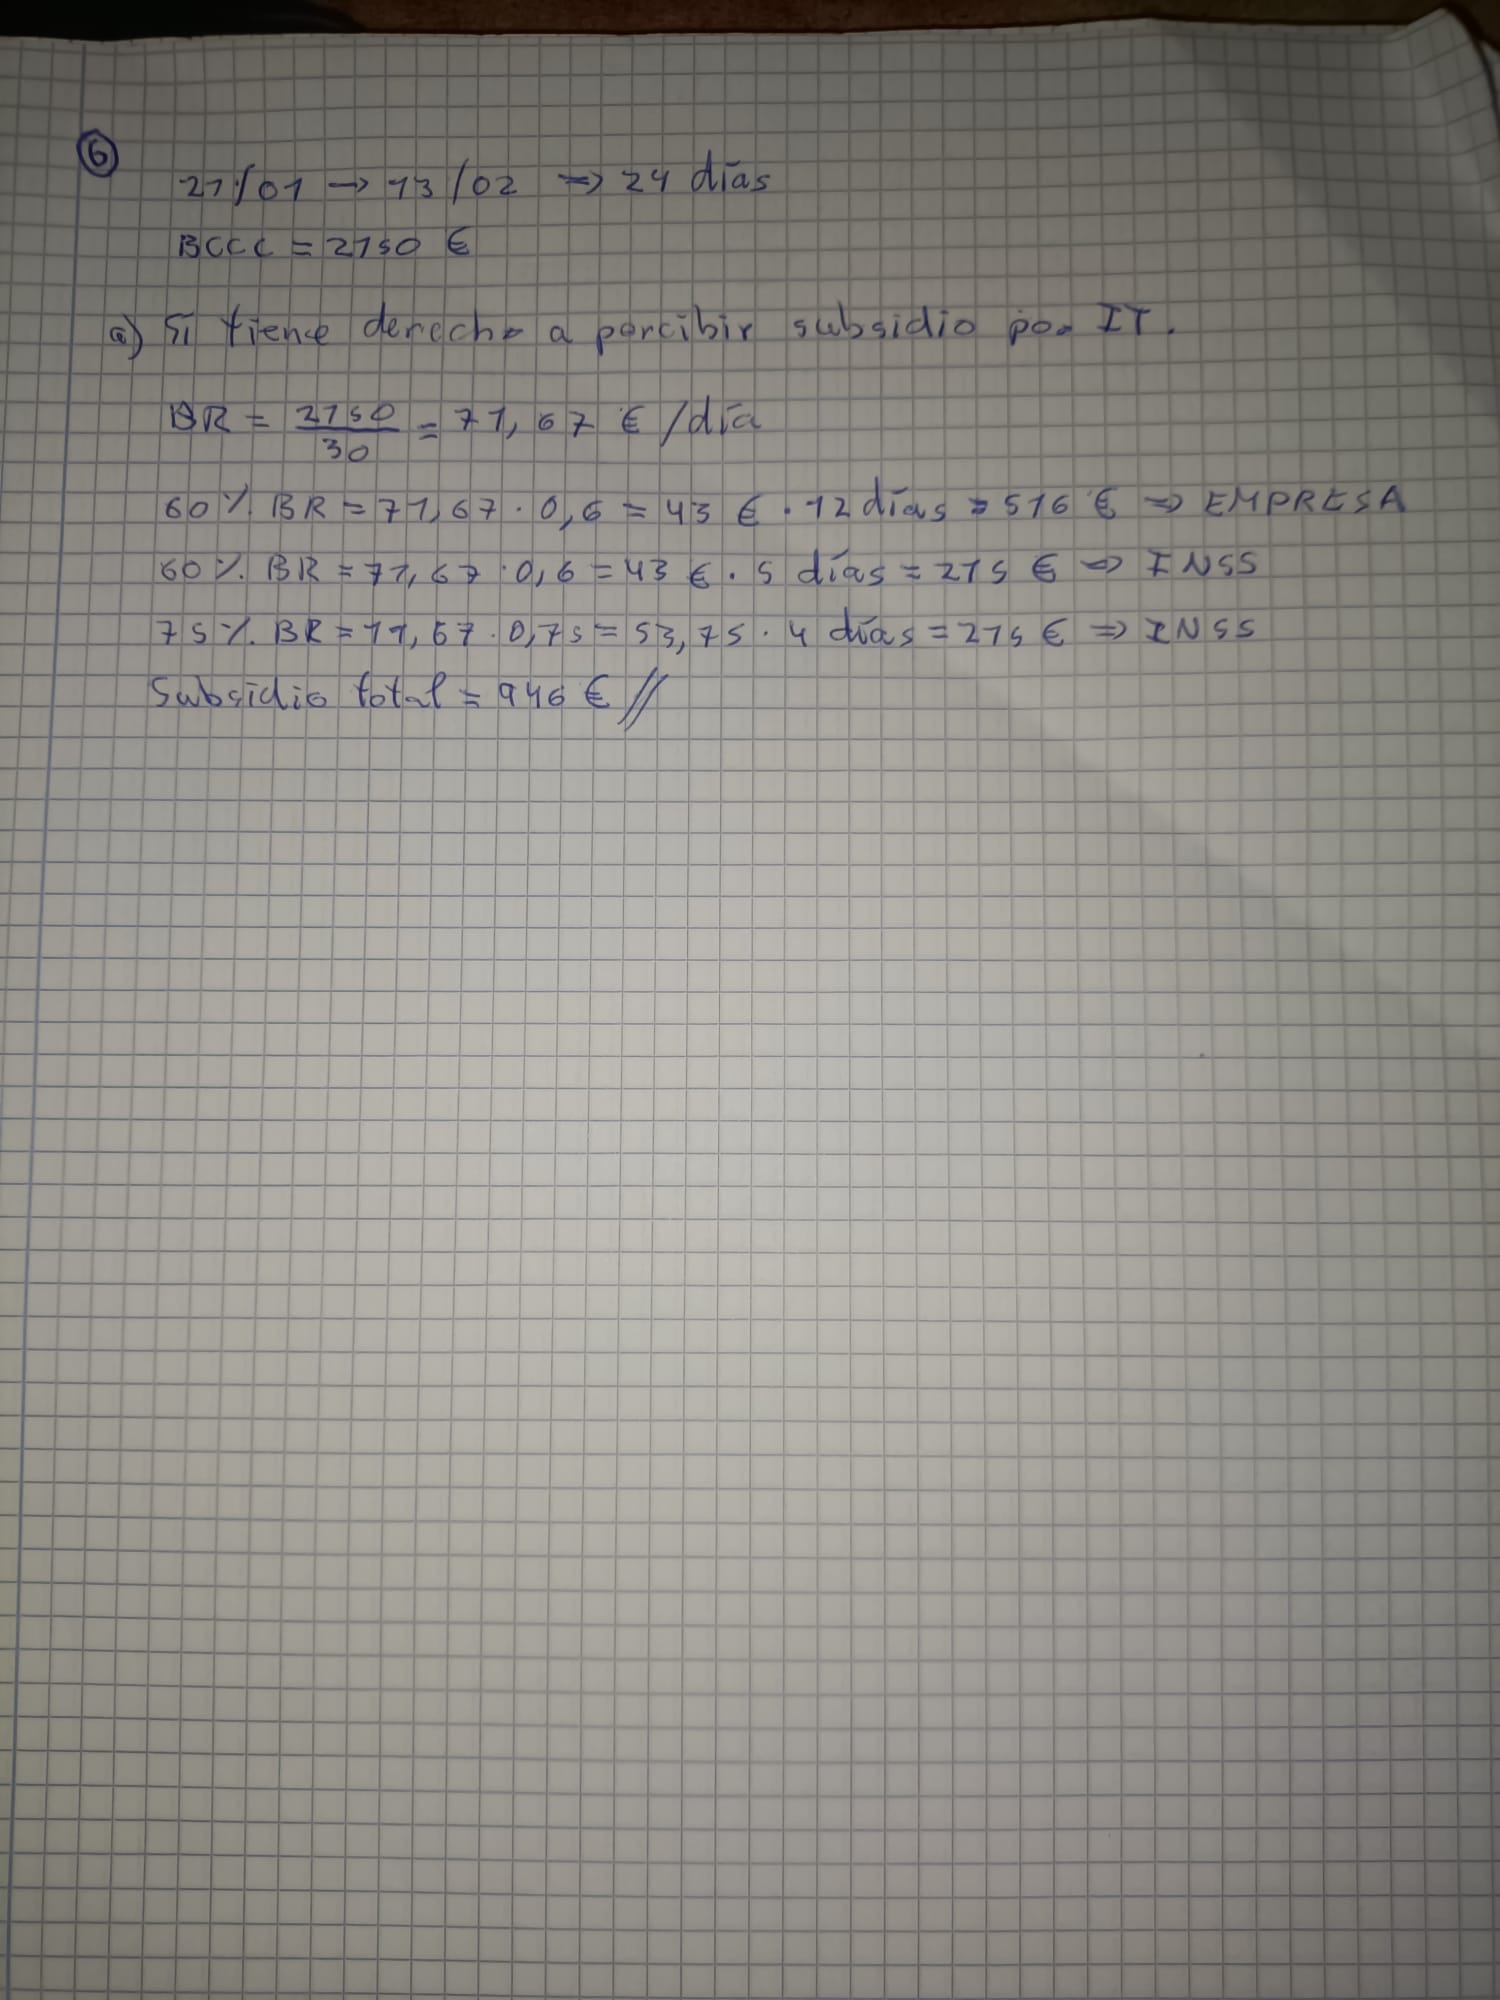 6
21/01 → 13/02 ⇒ 24 días
BCCC = 2150 €
a) Sí tiene derecho a percibir subsidio por IT.
BR = 2150/30 = 71,67 €/día
60% BR = 71,67 · 0,6 = 43 € · 12 días = 516 € ⇒ EMPRESA
60% BR = 71,67 · 0,6 = 43 € · 5 días = 215 € ⇒ INSS
75% BR = 71,67 · 0,75 = 53,75 · 4 días = 215 € ⇒ INSS
Subsidio total = 946 € //